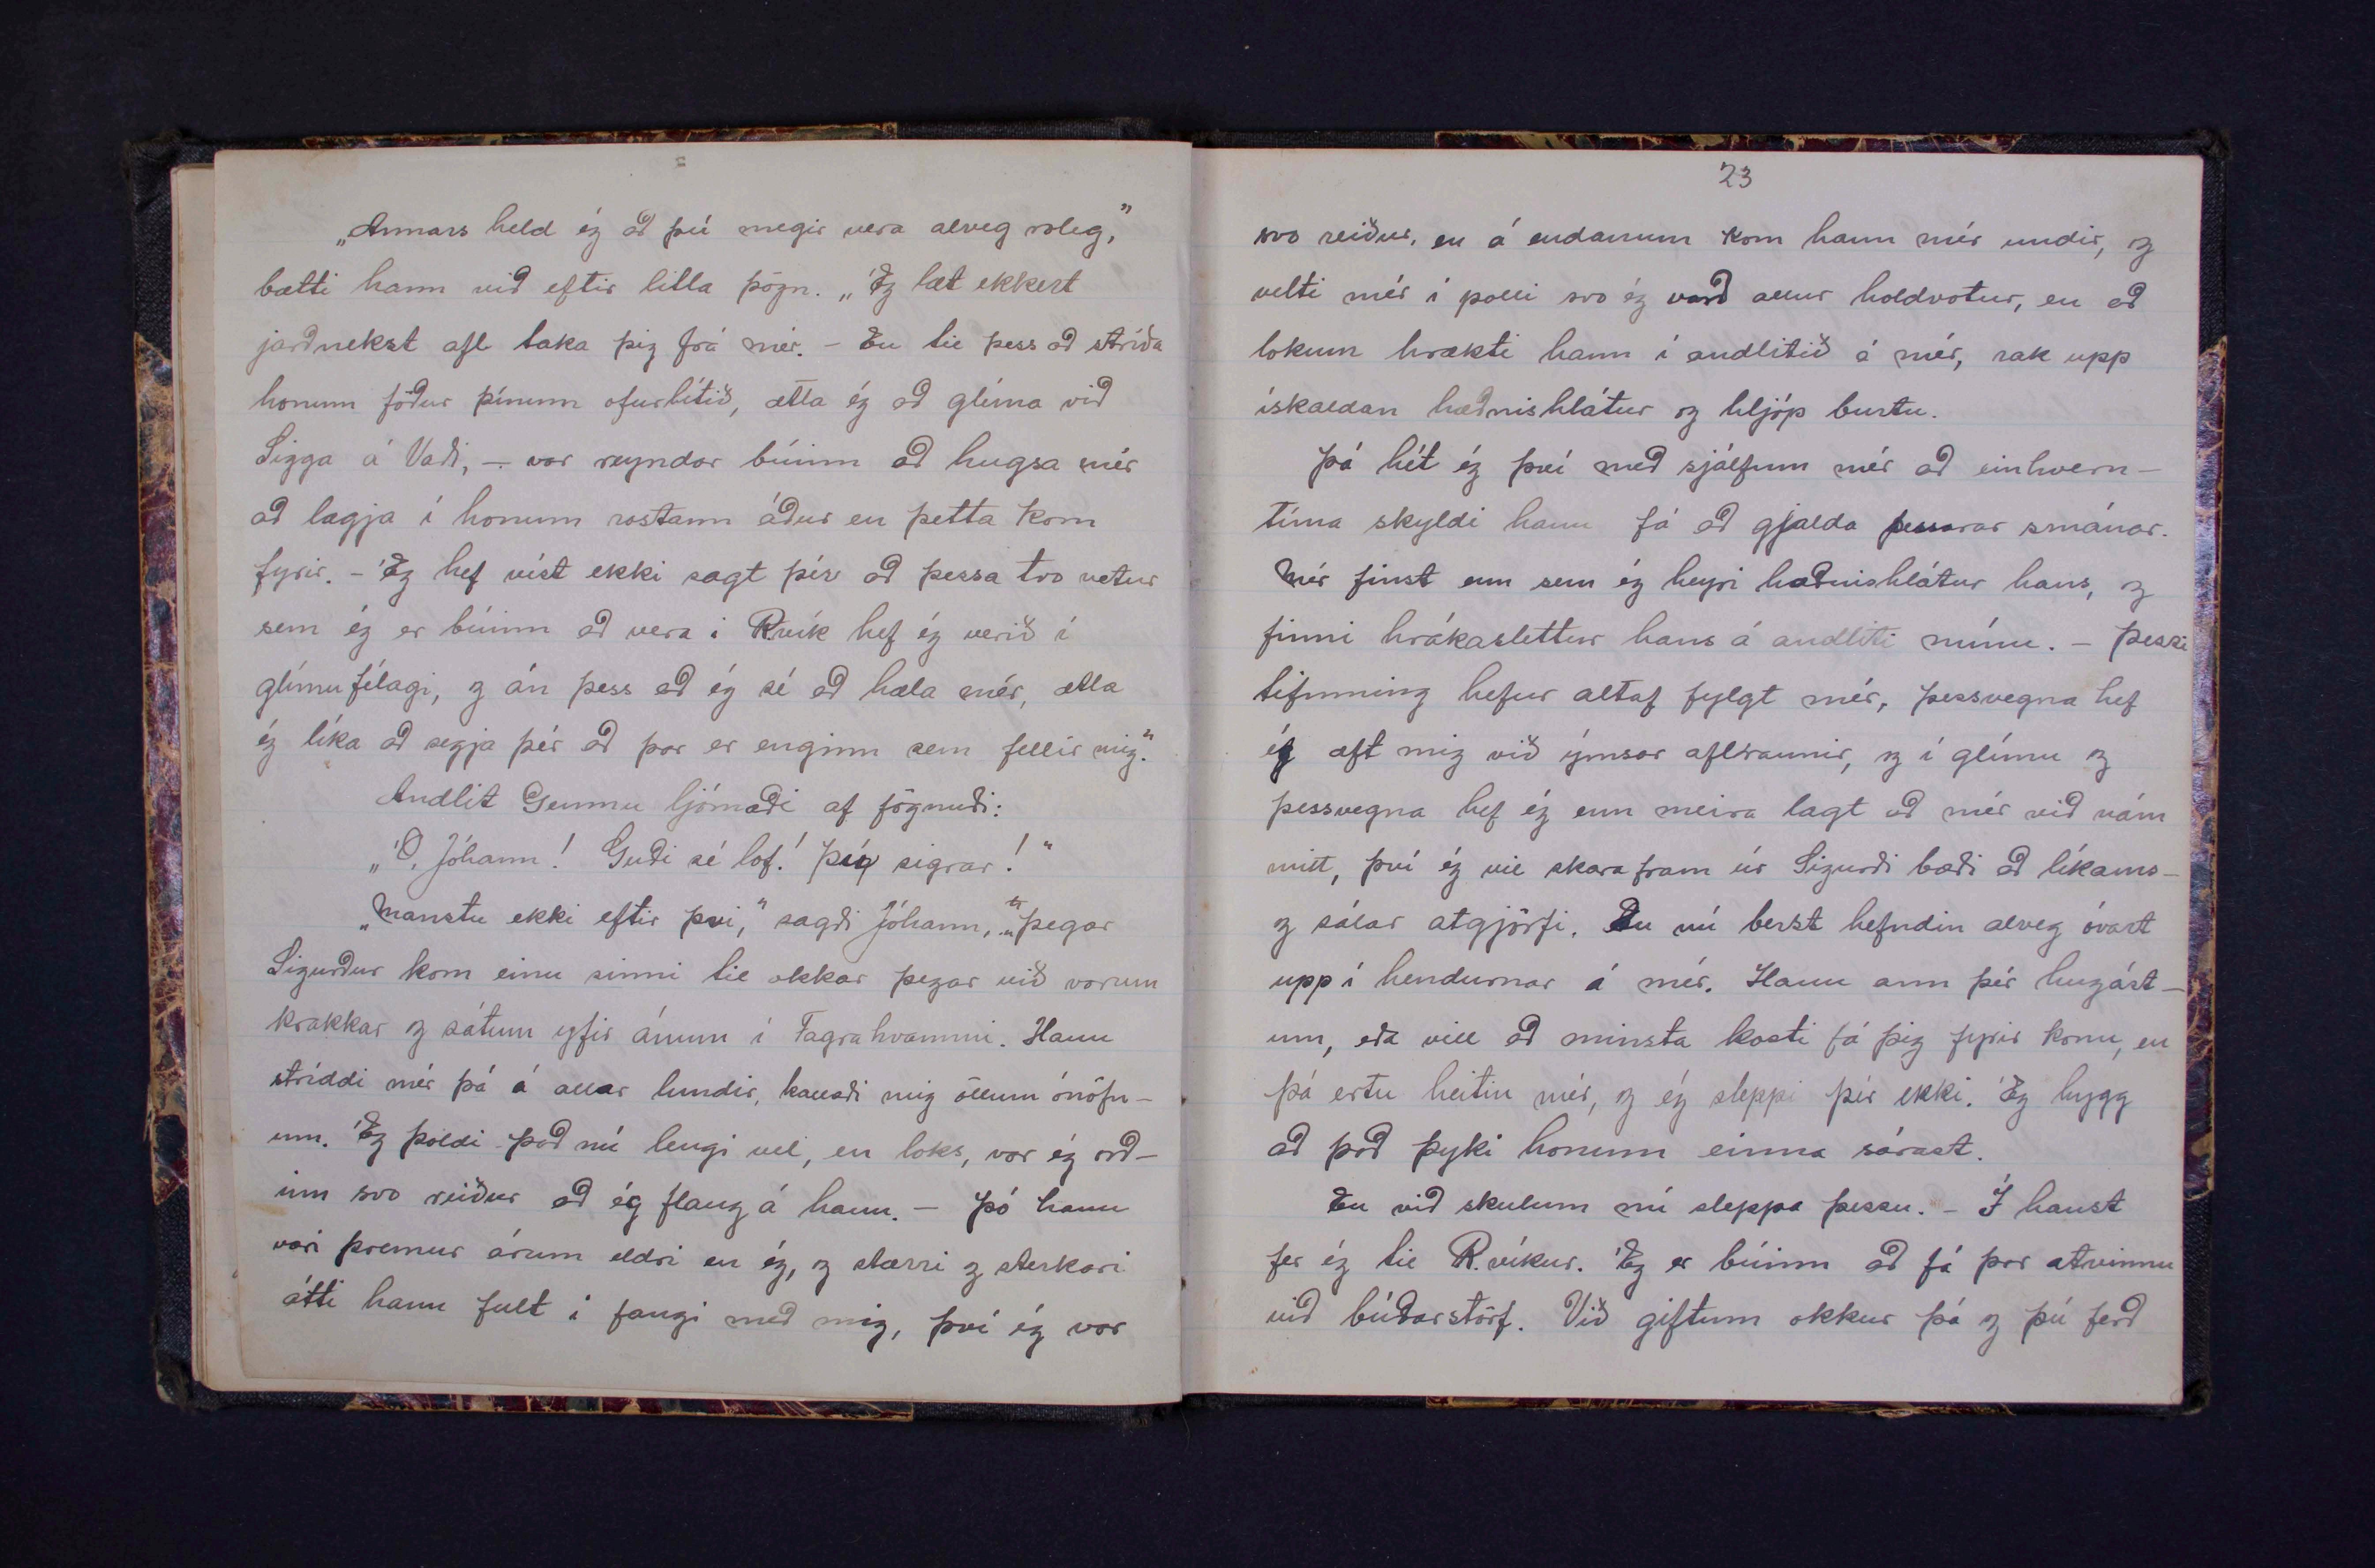 „Annars held ég að þú megir vera alveg róleg,"
bætti hann við eftir litla þögn. „Ég læt ekkert
jarðnekst afl taka þig frá mér. - En til þess að stríða
honum föður þínum ofurlítið, ætla ég að glíma við
Sigga á Vaði, - var reyndar búinn að hugsa mér
að lægja í honum rostann áður en þetta kom
fyrir. - Ég hef víst ekki sagt þér að þessa tvo vetur
sem ég er búinn að vera í Rvík hef ég verið í
glímufélagi, og án þess að ég sé að hæla mér, ætla
ég líka að segja þér að þar er enginn sem fellir mig."
Andlit Gunnu ljómaði af fögnuði:
„Ó, Jóhann! Guði sé lof! Þú sigrar!"
„Manstu ekki eftir því," sagði Jóhann, „þegar
Sigurður kom einu sinni til okkar þegar við vorum
krakkar og sátum yfir ánum í Fagrahvammi. Hann
stríddi mér þá á allar lundir, kallaði mig öllum ónöfn-
um. Ég þoldi það nú lengi vel, en loks, var ég orð-
inn svo reiður að ég flaug á hann. - Þó hann
væri þremur árum eldri en ég, og stærri og sterkari
átti hann fult í fangi með mig, því ég var
23
svo reiður, en á endanum kom hann mér undir, og
velti mér í polli svo ég varð allur holdvotur, en að
lokum hrækti hann í andlitið á mér, rak upp
ískaldan hæðnishlátur og hljóp burtu.
Þá hét ég því með sjálfum mér að einhvern-
tíma skyldi hann fá að gjalda þessarar smánar.
Mér finst enn sem ég heyri hæðnishlátur hans, og
finni hrákaslettur hans á andliti mínu. - Þessi
tifinning hefur altaf fylgt mér, þessvegna hef
ég æft mig við ýmsar aflraunir, og í glímu og
þessvegna hef ég enn meira lagt að mér við nám
mitt, því ég vil skara fram úr Sigurði bæði að líkams-
og sálar atgjörfi. En nú berst hefndin alveg óvart
upp í hendurnar á mér. Hann ann þér hugást-
um, eða vill að minsta kosti fá þig fyrir konu, en
þá ertu heitin mér, og ég sleppi þér ekki. Ég hygg
að það þyki honum einna sárast.
En við skulum nú sleppa þessu. - Í haust
fer ég til R.víkur. Ég er búinn að fá þar atvinnu
við búðarstörf. Við giftum okkur þá og þú ferð